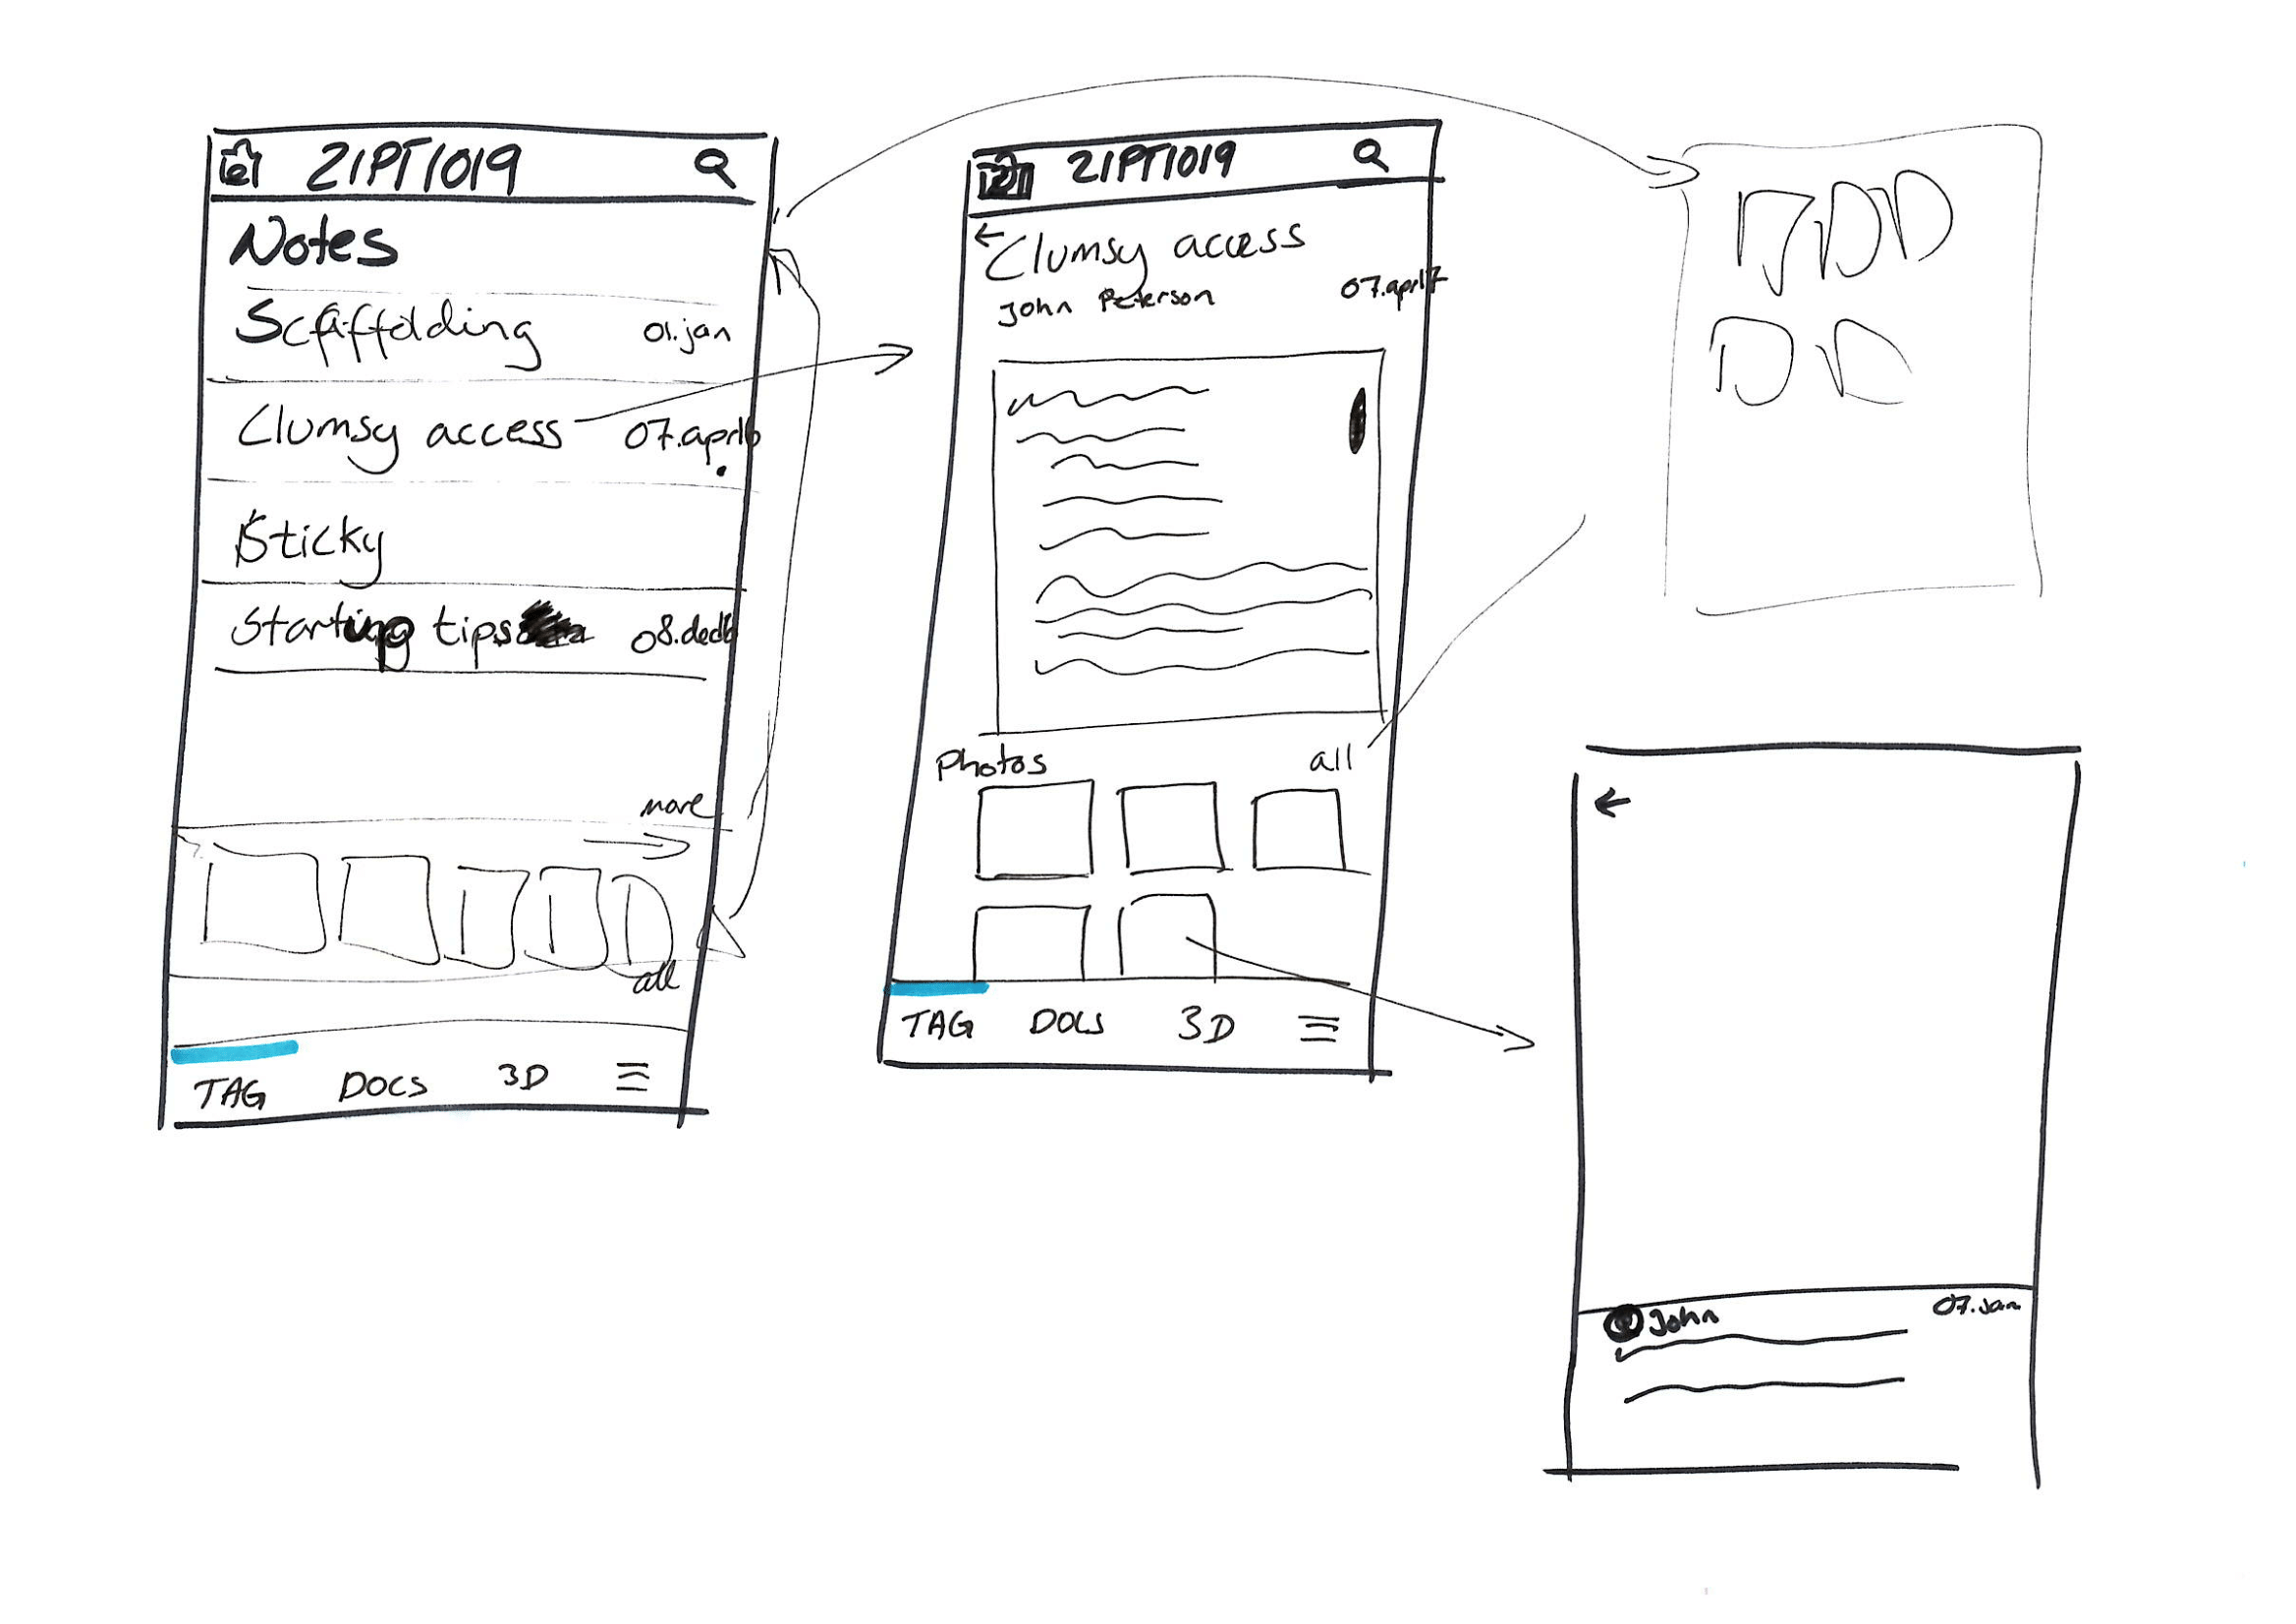 21PT1019
Notes
Scaffolding 01.jan
Clumsy access 07.apr16
Sticky
Starting tips 08.dec16
more
all
TAG DOCS 3D
21PT1019
Clumsy access
John Peterson 07.apr17
Photos all
TAG DOCS 3D
John 07.jan